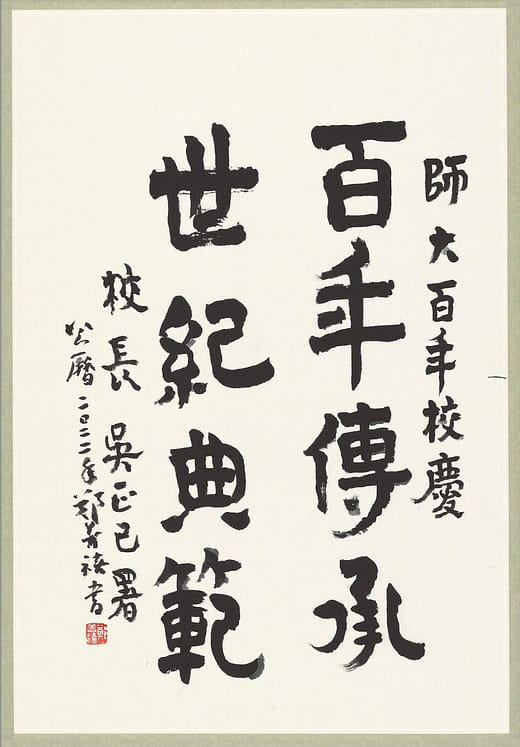 師大百年校慶
百年傳承
世紀典範
校長吳正己署
公曆二〇二二年鄭善禧書